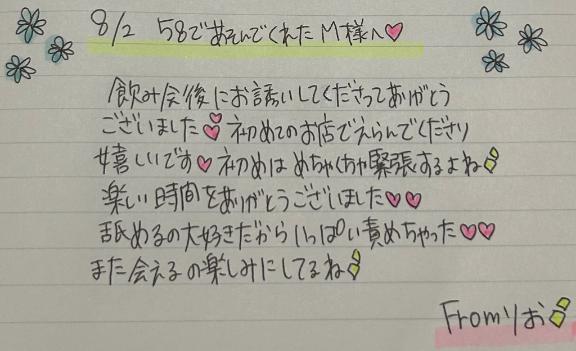 8/2 58であそんでくれたM様へ♡
飲み会後にお誘いしてくださってありがとう
ございました♡初めてのお店でえらんでくださり
嬉しいです♡初めはめちゃくちゃ緊張するよね
楽しい時間をありがとうございました♡♡
舐めるの大好きだからいっぱい責めちゃった♡♡
また会えるの楽しみにしてるね
Fromりお